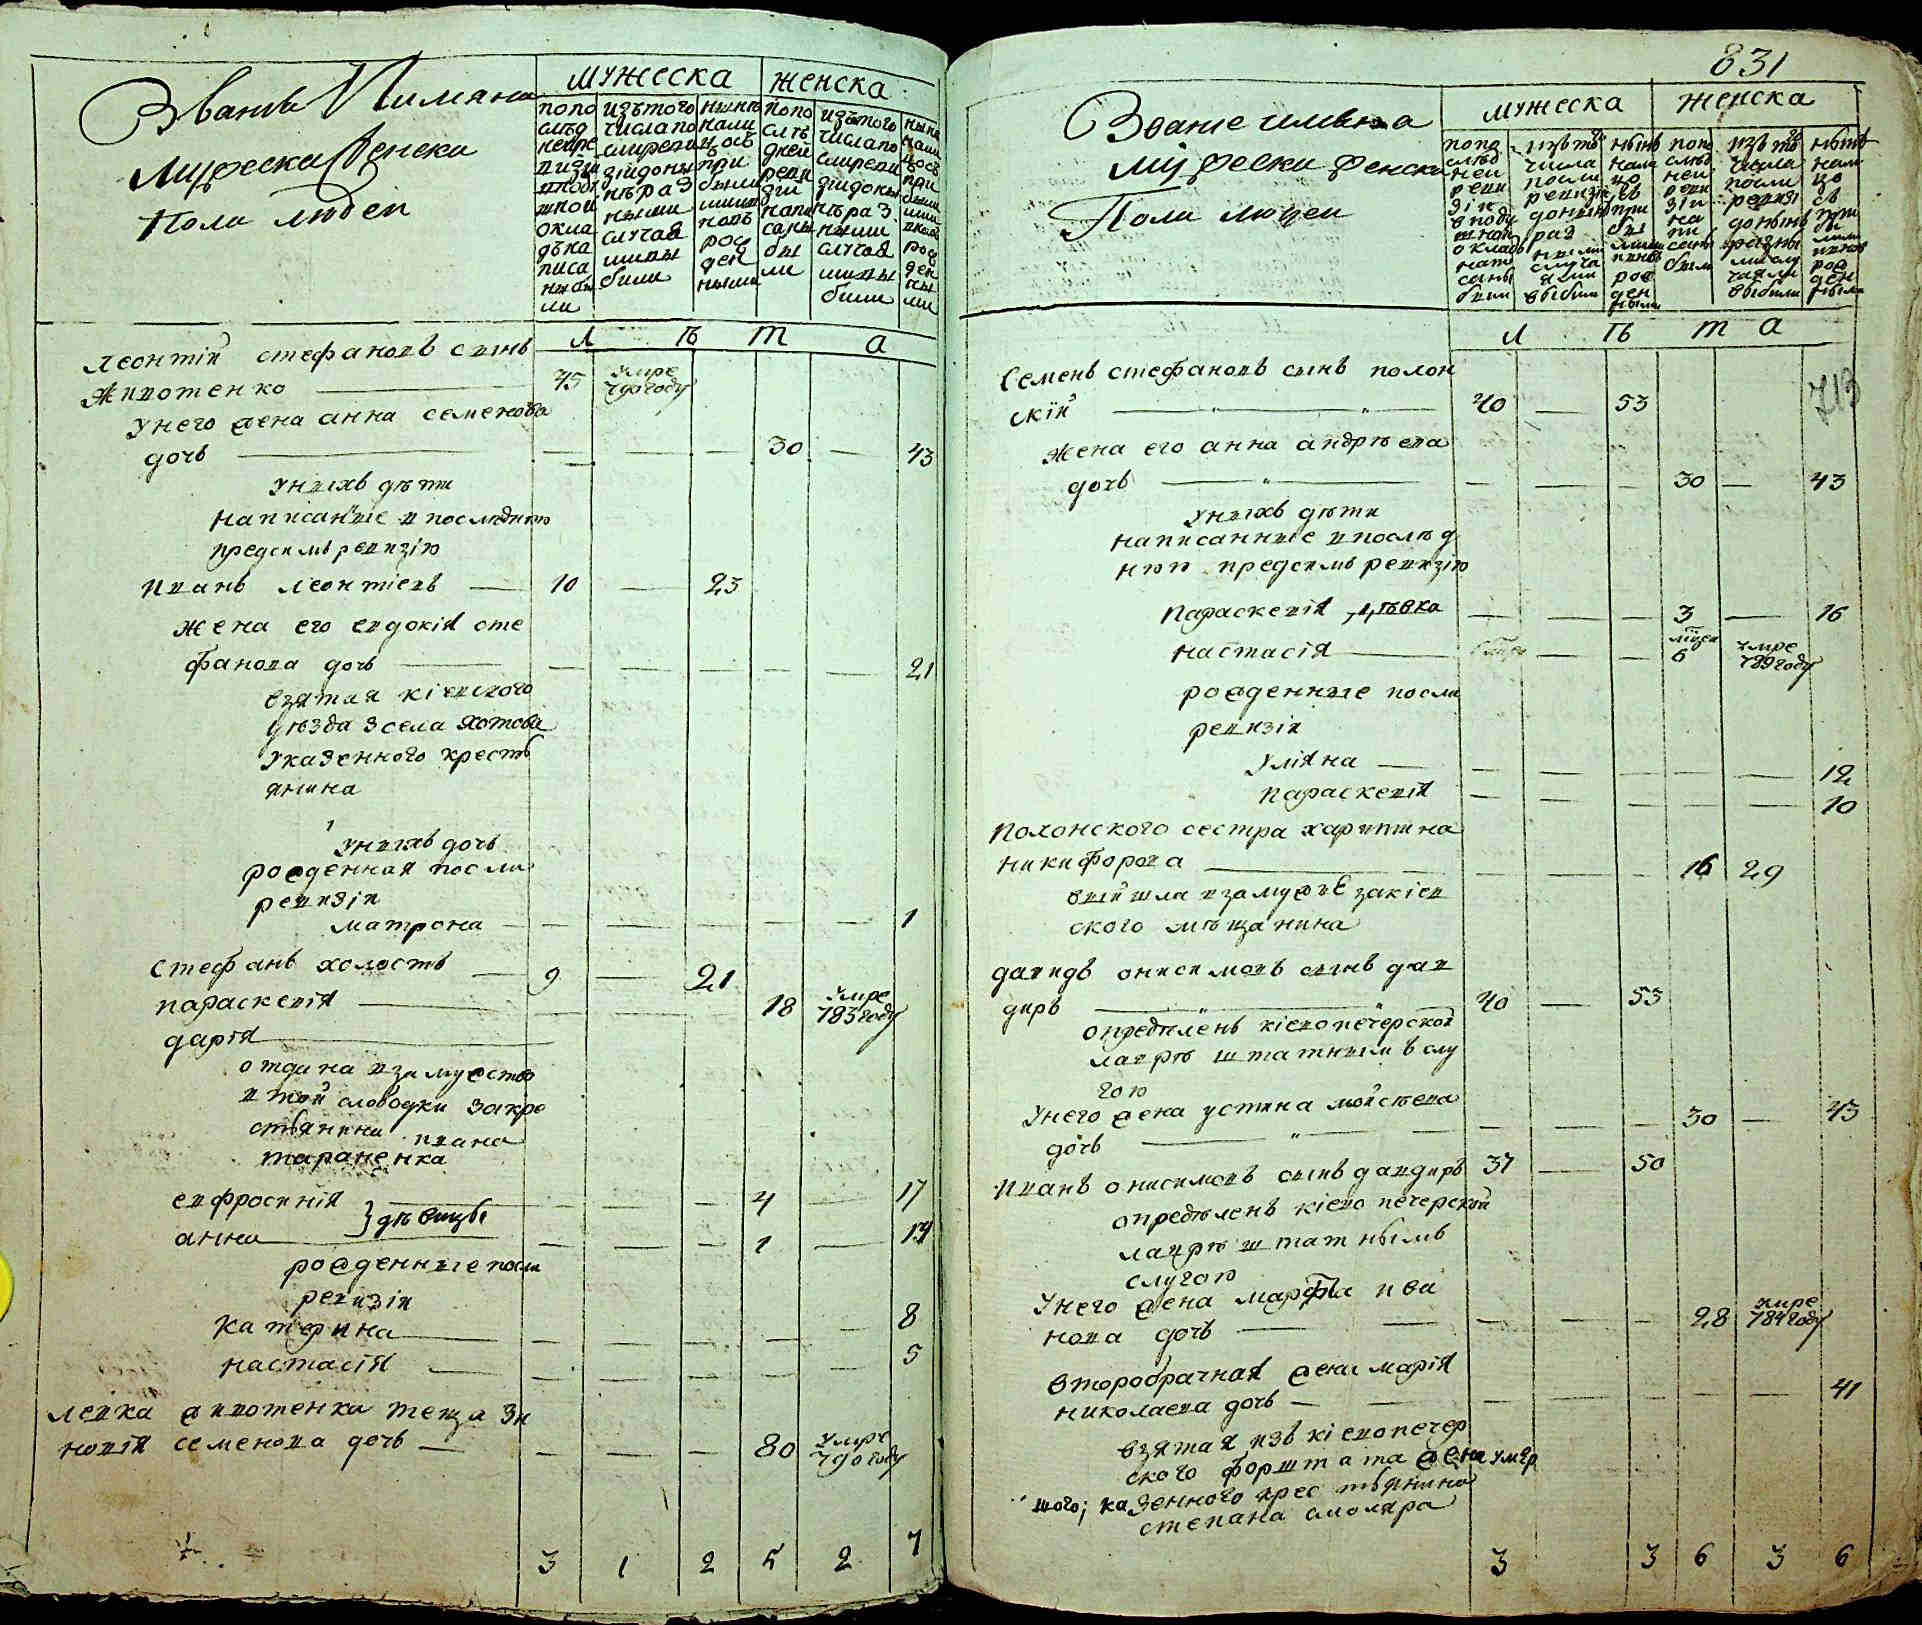 Званіе Имяна
Мужеска Женска
Пола людей
мужеска женска
попо
слѣд
ней ре
визіи
вподу
шной
окла
дъ на
писа
ны бы
ли
изътого
числа по
слѣ реви
зіи до ны
нѣ раз
ными
случая
ми вы
были
нынѣ
нали
цо съ
при
былы
ми и
новь
рож
ден
ными
попо
слѣ
дней
реви
зіи
напи
саны
бы
ли
изътого
числа по
слѣ реви
зіи до ны
нѣ раз
ными
случая
ми вы
были
нынѣ
нали
цо съ
при
былы
ми и
новь
рож
ден
ны
ми
Л ѣ т а
леонтій стефановъ сынъ
Животенко 45 умре 790 году
унего жена анна семенова
дочь 30 43
унихъ дѣти
написанные впослѣднюю
предсимъ ревизію
Иванъ леонтіевъ 10 23
жена его евдокія сте
фанова дочь 21
взятая кіевского
уѣзда з села Хотова
указенного кресть
янина
унихъ дочь
рожденная посли
ревизіи
матрона 1
стефанъ холостъ 9 21
параскевія 18 умре 783 году
дарія
отдана взамужство
втой слободки закре
стьянина ивана
тараненка
евфросинія } дѣвицы 4 17
анна 1 14
рожденные посли
ревизіи
Катерина 8
настасія 5
левка животенка теща Зи
новія семенова дочь 80 умре 790 году
3 1 2 5 2 7
831
Званіе имяна
мужеска женска
Пола людей
мужеска женска
попо
слѣд
ней
реви
зіи
вподу
шной
окладъ
напи
саны
были
изътого
числа
посли
ревизіи
до нынѣ
раз
ными
случа
ями
выбыли
нынѣ
нали
цо
съ
при
бы
лыми
ивновь
рож
ден
ными
попо
слѣд
ней
реви
зіи
на
пи
саны
были
изътого
числа
посли
ревизіи
донынѣ
разны
ми слу
чаями
выбыли
нынѣ
нали
цо
съ
при
бы
лыми
ивновь
рож
ден
ными
Л ѣ т а
713
Семенъ стефановъ сынъ полон
скій 40 53
жена его анна андрѣева
дочь 30 43
унихъ дѣти
написанные впослѣд
нюю предсимъ ревизію
Параскевія дѣвка 3 16
настасія мѣсец 6 умре 789 году
рожденные посли
ревизіи
уліяна 12
параскевія 10
полонского сестра харитина
никифорова 16 29
вышла взамужъе закіев
ского мѣщанина
давидъ онисимовъ сынъ дав
диръ 40 53
опредѣленъ кіевопечерской
лаврѣ штатнымъ слу
гою
унего жена устина мойсѣева
дочь 30 43
Иванъ онисимовъ сынъ давдиръ 37 50
опредѣленъ кіево печерской
лаврѣ штатнымъ
слугою
унего жена марфа ива
нова дочь 28 умре 784 году
второбрачная жена марія
николаева дочь 41
взятая изъ кіевопечер
ского форштата жена умер
шого; казенного крестьянина
степана смоляра
3 3 6 3 6